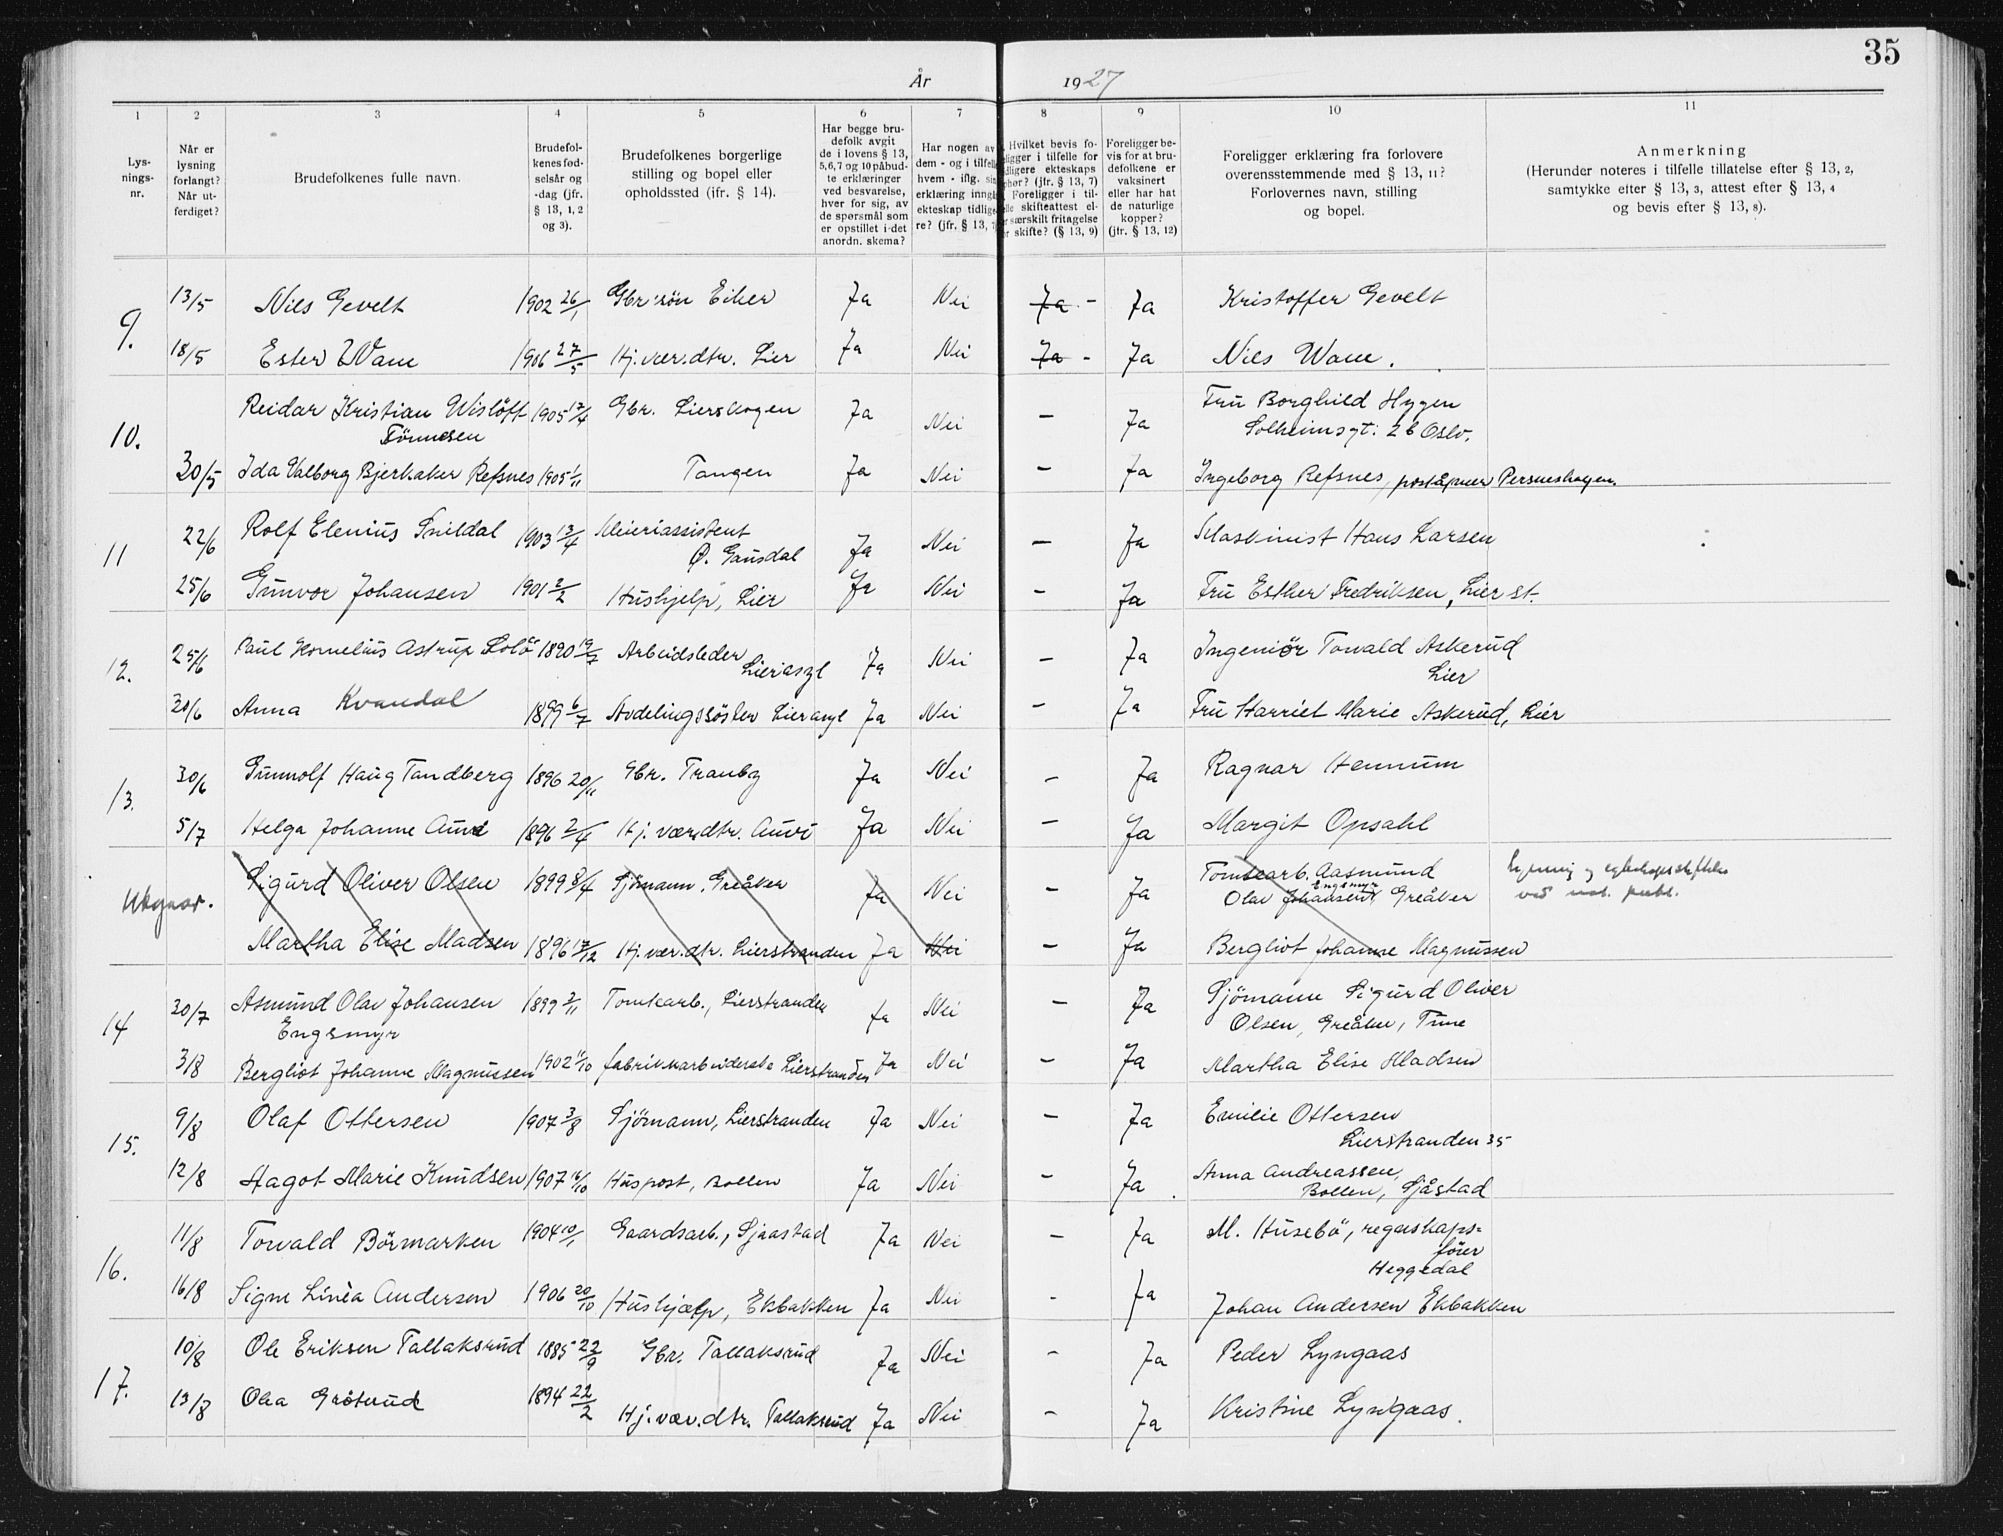 35
År 1927
1 2 3 4 5 6 7 8 9 10 11
Lys-
nings-
nr.
Når er
lysning
forlangt?
Når ut-
ferdiget?
Brudefolkenes fulle navn.
Brudefol-
kenes fød-
selsår og
-dag (jfr.
§ 13, 1, 2
og 3).
Brudefolkenes borgerlige
stilling og bopel eller
opholdssted (ifr. § 14).
Har begge bru-
defolk avgit
de i lovens § 13,
5,6,7 og 10 påbud-
te erklæringer
ved besvarelse,
hver for sig, av
de spørsmål som
er opstillet i det
anordn. skema?
Har nogen av
dem - og i tilfelle
hvem - iflg. sin
erklæring inngå
ekteskap tidlige
re? (jfr. § 13,
Hvilket bevis fo-
ligger i tilfelle for
dligere ekteskaps
phør? (jfr. § 13, 7)
Foreligger i til-
elle skifteattest el-
r særskilt fritagelse
or skifte? (§ 13, 9)
Foreligger be-
vis for at bru-
defolkene er
vaksinert
eller har hat
de naturlige
kopper?
(jfr. § 13, 12)
Foreligger erklæring fra forlovere
overensstemmende med § 13, 11?
Forlovernes navn, stilling
og bopel.
Anmerkning
(Herunder noteres i tilfelle tillatelse efter § 13, 2,
samtykke efter § 13, 3, attest efter § 13, 4
og bevis efter § 13, 8).
9. 13/5 Nils Gevelt 1902 26/1 Gbr.søn Eiker Ja Nei Ja - Ja Kristoffer Gevelt
18/5 Ester Wam 1906 27/5 Hj.vær.dtr. Lier Ja Nei Ja - Ja Nils Wam.
10. Reidar Kristian Wisløff 1905 17/4 Gbr. Lierskogen Ja Nei - Ja Fru Borghild Hygen
Tönnesen Solheimsgt: 2 b Oslo.
30/5 Ida Valborg Bjerkaker Refsnes 1905 1/11 Tangen Ja Nei - Ja Ingeborg Refsnes, poståpner Persneskogen.
11 22/6 Rolf Elenius Snildal 1903 13/4 Meieriassistent Ja Nei - Ja Maskinist Hans Larsen
Ø. Gausdal
25/6 Gunvor Johansen 1901 2/2 Hushjelp, Lier Ja Nei - Ja Fru Esther Fredriksen, Lier st.
12. 25/6 Paul Kornelius Astrup Solö 1890 19/7 Arbeidsleder Ja Nei - Ja Ingeniör Torvald Askerud
Lierasyl Lier
30/6 Anna Kvandal 1899 6/7 Avdelingssöster Lierasyl Ja Nei - Ja Fru Harriet Marie Askerud, Lier
13. 30/6 Gunnolf Haug Tandberg 1896 20/11 Gbr. Tranby Ja Nei - Ja Ragnar Hennum
5/7 Helga Johanne 1896 2/4 Hj. vær.dtr. Ja Nei - Ja Margit Opsahl
Utgaar. Sigurd Oliver Olsen 1899 8/4 Sjömann, Greåker Ja Nei - Ja Tomtearb. Aasmund
Olav Johansen Engsmyr Greåker
ved not. publ.
Martha Elise Madsen 1896 17/12 Hj.vær.dtr. Lierstranden Ja Nei - Ja Bergliot Johanne Magnussen
14 30/7 Asmund Olav Johansen 1899 3/11 Tomtearb., Lierstranden Ja Nei - Ja Sjömann Sigurd Oliver
Engsmyr Olsen, Greåker, Tune
3/8 Bergliot Johanne Magnussen 1902 11/10 fabrikkarbeiderske Lierstranden Ja Nei - Ja Martha Elise Madsen
15. 9/8 Olaf Ottersen 1907 3/8 Sjömann, Lierstranden Ja Nei - Ja Emilie Ottersen
Lierstranden 35
12/8 Hagot Marie Knudsen 1907 16/10 Huspost, Bollen Ja Nei - Ja Anna Andreassen,
Bollen, Sjåstad
16. 11/8 Torvald Börmarken 1904 10/1 Gaardsarb., Sjaastad Ja Nei - Ja M. Husebö, regnskaps=
förer
Heggedal
16/8 Signe Linèa Andersen 1906 20/10 Hushjælp, Ekbakken Ja Nei - Ja Johan Andersen Ekbakken
17. 10/8 Ole Eriksen Tallaksrud 1885 22/9 Gbr. Tallaksrud Ja Nei - Ja Peder Lyngaas
13/8 Olea Gråterud 1894 22/2 Hj.vær.dtr. Tallaksrud Ja Nei - Ja Kristine Lyngaas.